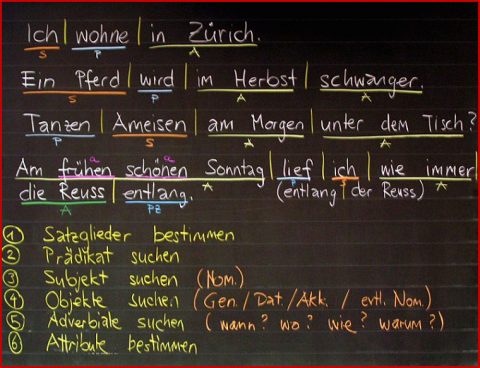 Ich | wohne | in Zürich.
S P A
Ein Pferd | wird | im Herbst | schwanger.
S P A A
Tanzen | Ameisen | am Morgen | unter dem Tisch?
P S A A
a a
Am frühen schönen Sonntag | lief | ich | wie immer |
A P S A
die Reuss | entlang. (entlang der Reuss)
A PZ
① Satzglieder bestimmen
② Prädikat suchen
③ Subjekt suchen (Nom.)
④ Objekte suchen (Gen./Dat./Akk. / evtl. Nom.)
⑤ Adverbiale suchen (wann? wo? wie? warum?)
⑥ Attribute bestimmen